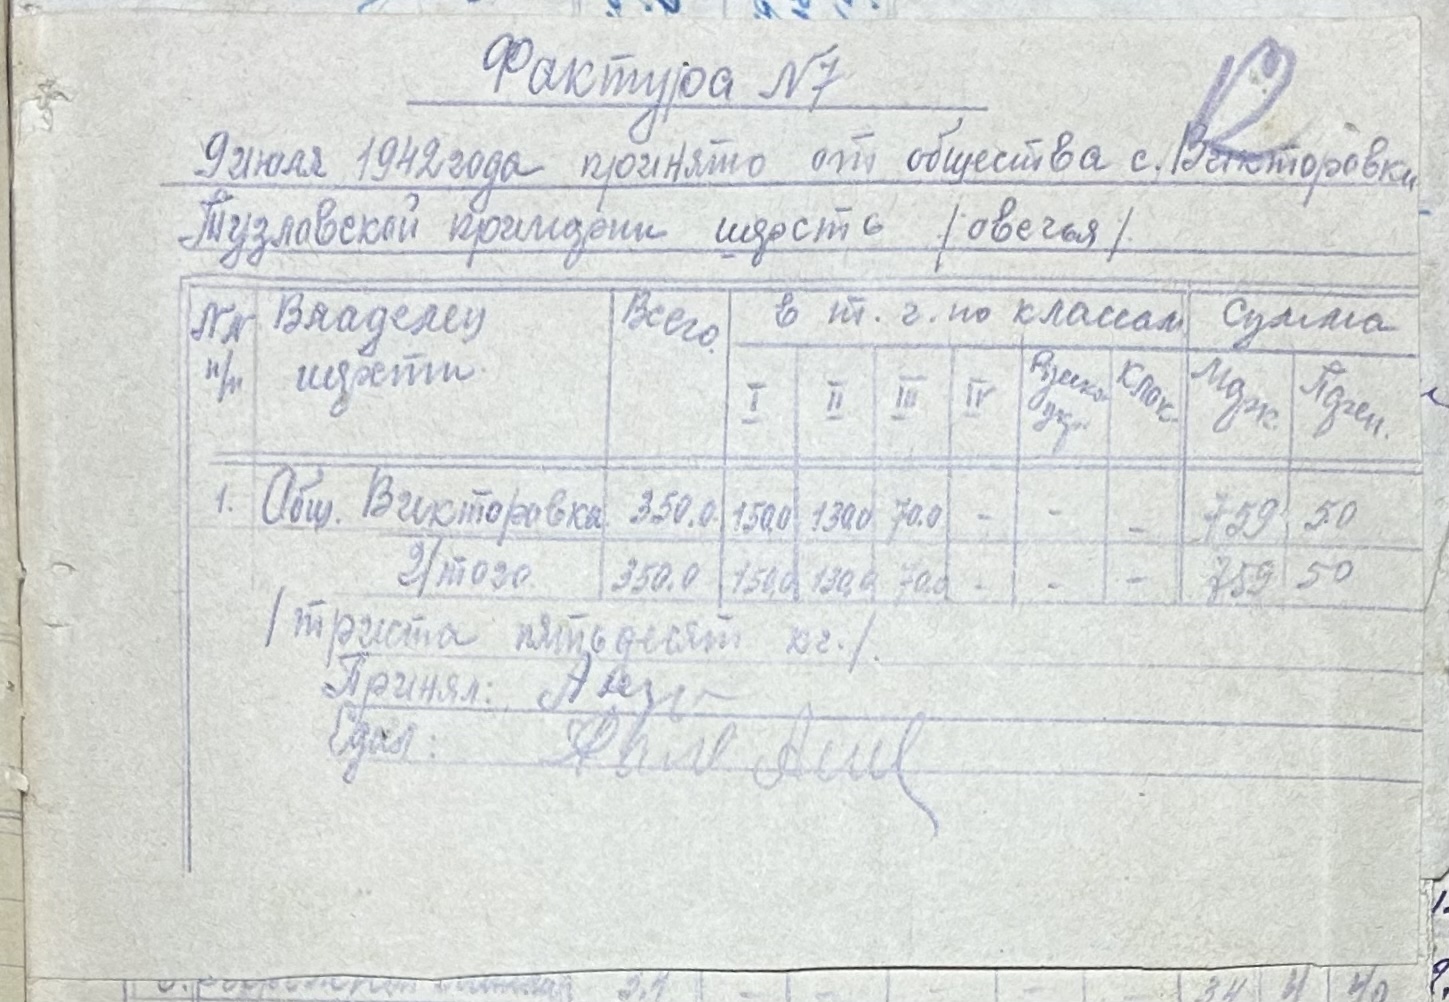 Фактура N7
9 июля 1942 года принято от общества с. Викторовки
Тузлавской примэрии шэрсть /овечья/.
NN п/п Владелец шэрсти Всего. в т. ч. по классам Сумма
I II III IV Клок. Марк. Пфен.
1. Общ. Викторовка 350.0 150.0 130.0 70.0 - - - 759 50
Итого. 350.0 150.0 130.0 70.0 - - - 759 50
/триста пятьдесят кг./.
Принял:
Сдал: